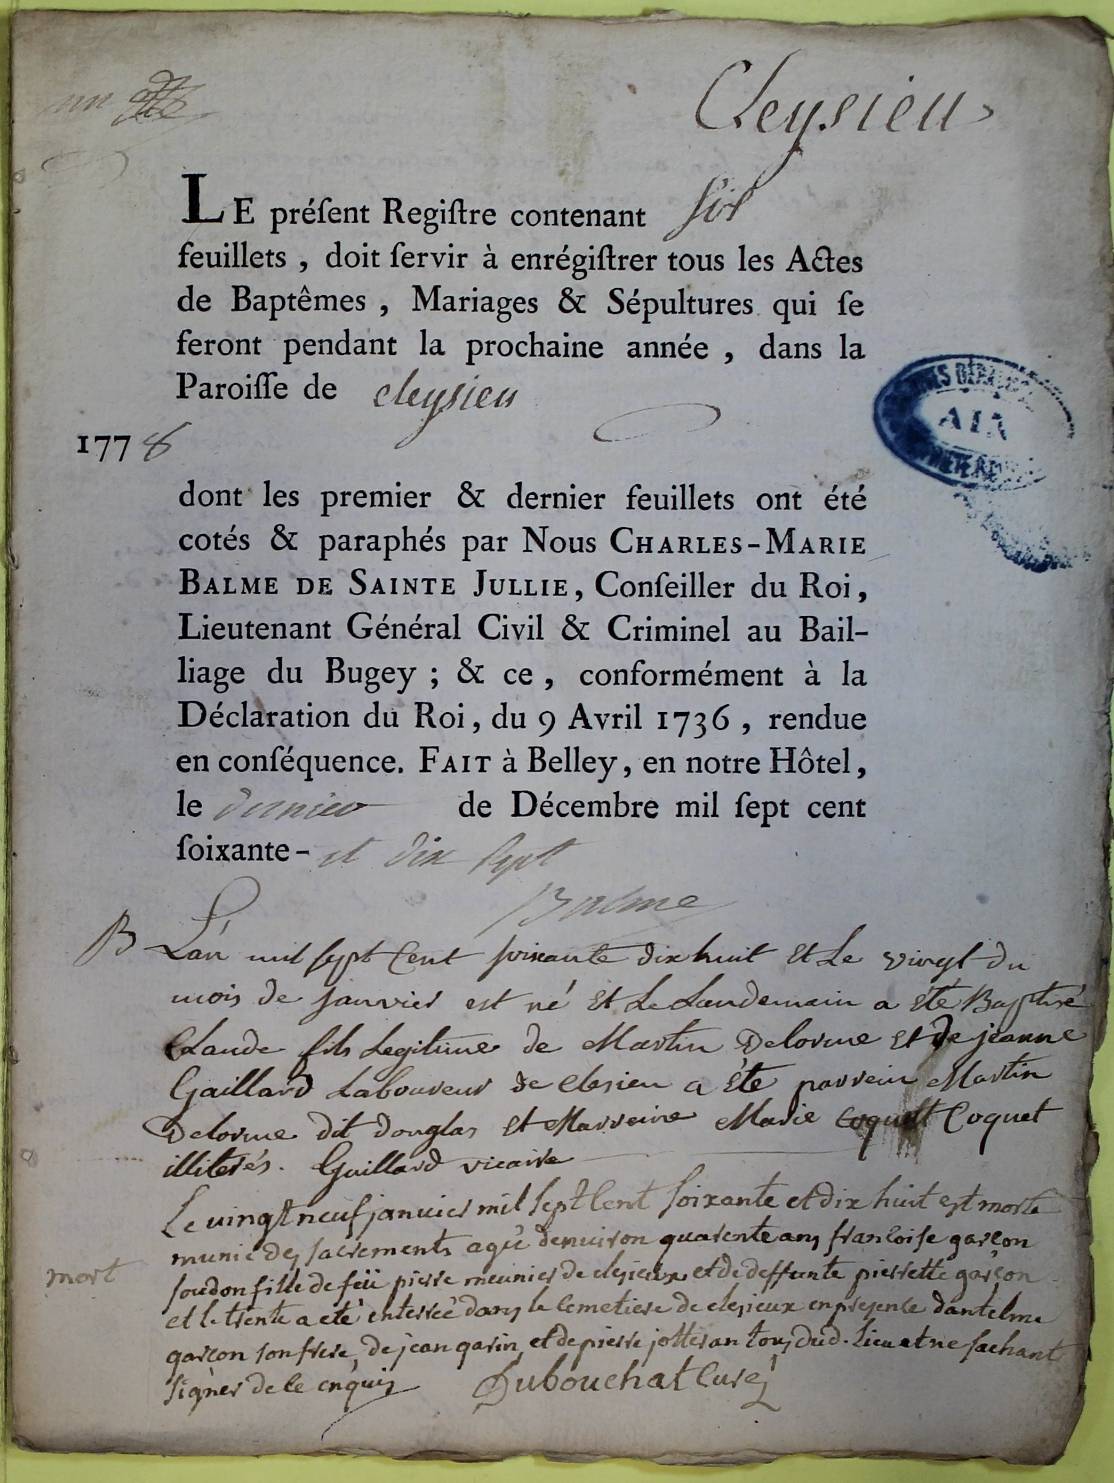 Cleysieu
LE préſent Regiſtre contenant six
feuillets , doit ſervir à enrégiſtrer tous les Actes
de Baptêmes , Mariages & Sépultures qui ſe
feront pendant la prochaine année , dans la
Paroiſſe de cleysieu
1778
dont les premier & dernier feuillets ont été
cotés & paraphés par Nous CHARLES-MARIE
BALME DE SAINTE JULLIE, Conſeiller du Roi,
Lieutenant Général Civil & Criminel au Bail-
liage du Bugey ; & ce , conformément à la
Déclaration du Roi, du 9 Avril 1736 , rendue
en conſéquence. FAIT à Belley, en notre Hôtel,
le dernier de Décembre mil ſept cent
ſoixante- et dix sept
Balme
AIN
B L'an mil sept Cent soixante dix huit Et Le vingt du
mois de janvier est né Et Le Landemain a éte Baptisé
Claude fils Legitime de Martin Delorme Et de jeanne
Gaillard Laboureur de Clesieu a Ete parrein Martin
Delorme dit douglas Et Marreine Marie Coquet
illiterés. Gaillard vicaire
Le vingt neuf janvier mil sept Cent soixante et dix huit est morte
munie des sacrements agée denviron quarente ans francoise garçon
mort
soudon fille de feü pierre meunier de clesieux et de deffunte pierrette garçon
et le trente a eté enterreé dans le Cemetiere de clesieux en presence dantelme
garcon son frere, de jean garin et de pierre jotteran tous dud. Lieu et ne sachant
signer de ce enquis Dubouchat Curé